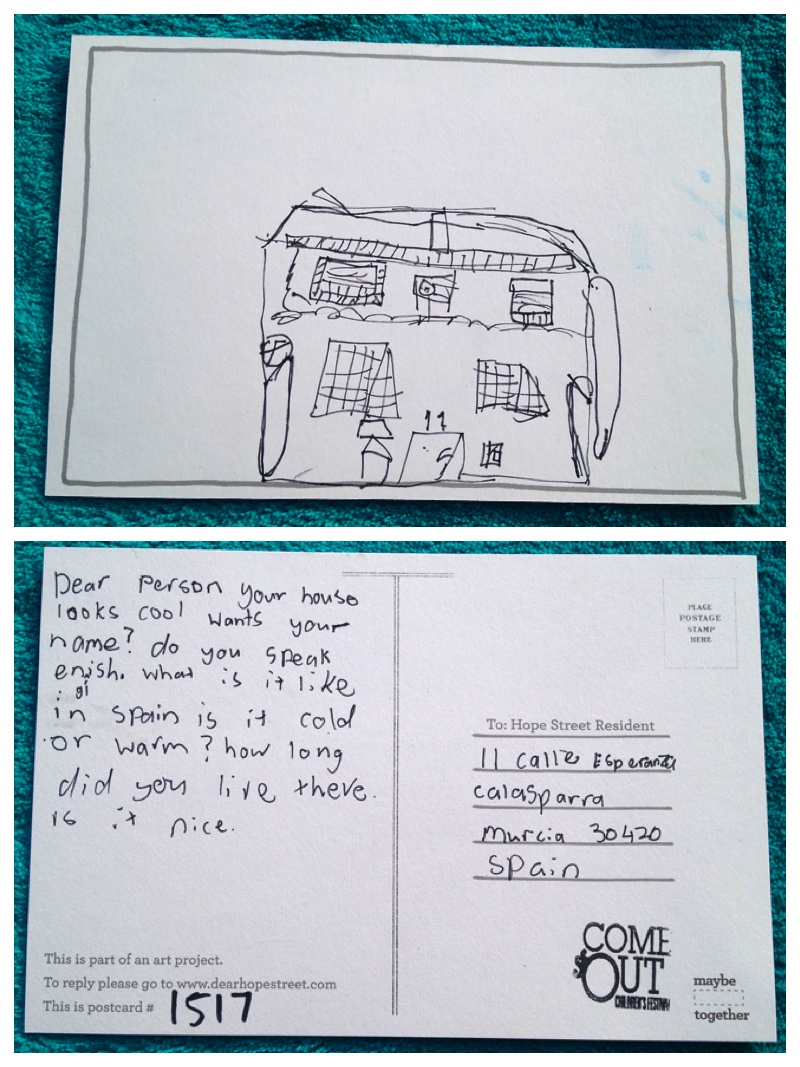 11
Dear Person your house
looks cool wants your
name? do you speak
enish. what is it like
gi
in spain is it cold
or warm? how long
did you live there.
is it nice.
This is part of an art project.
To reply please go to www.dearhopestreet.com
This is postcard # 1517
PLACE
POSTAGE
STAMP
HERE
To: Hope Street Resident
11 calle Esperanza
calasparra
murcia 30420
spain
COME
OUT
CHILDREN'S FESTIVAL
maybe
together